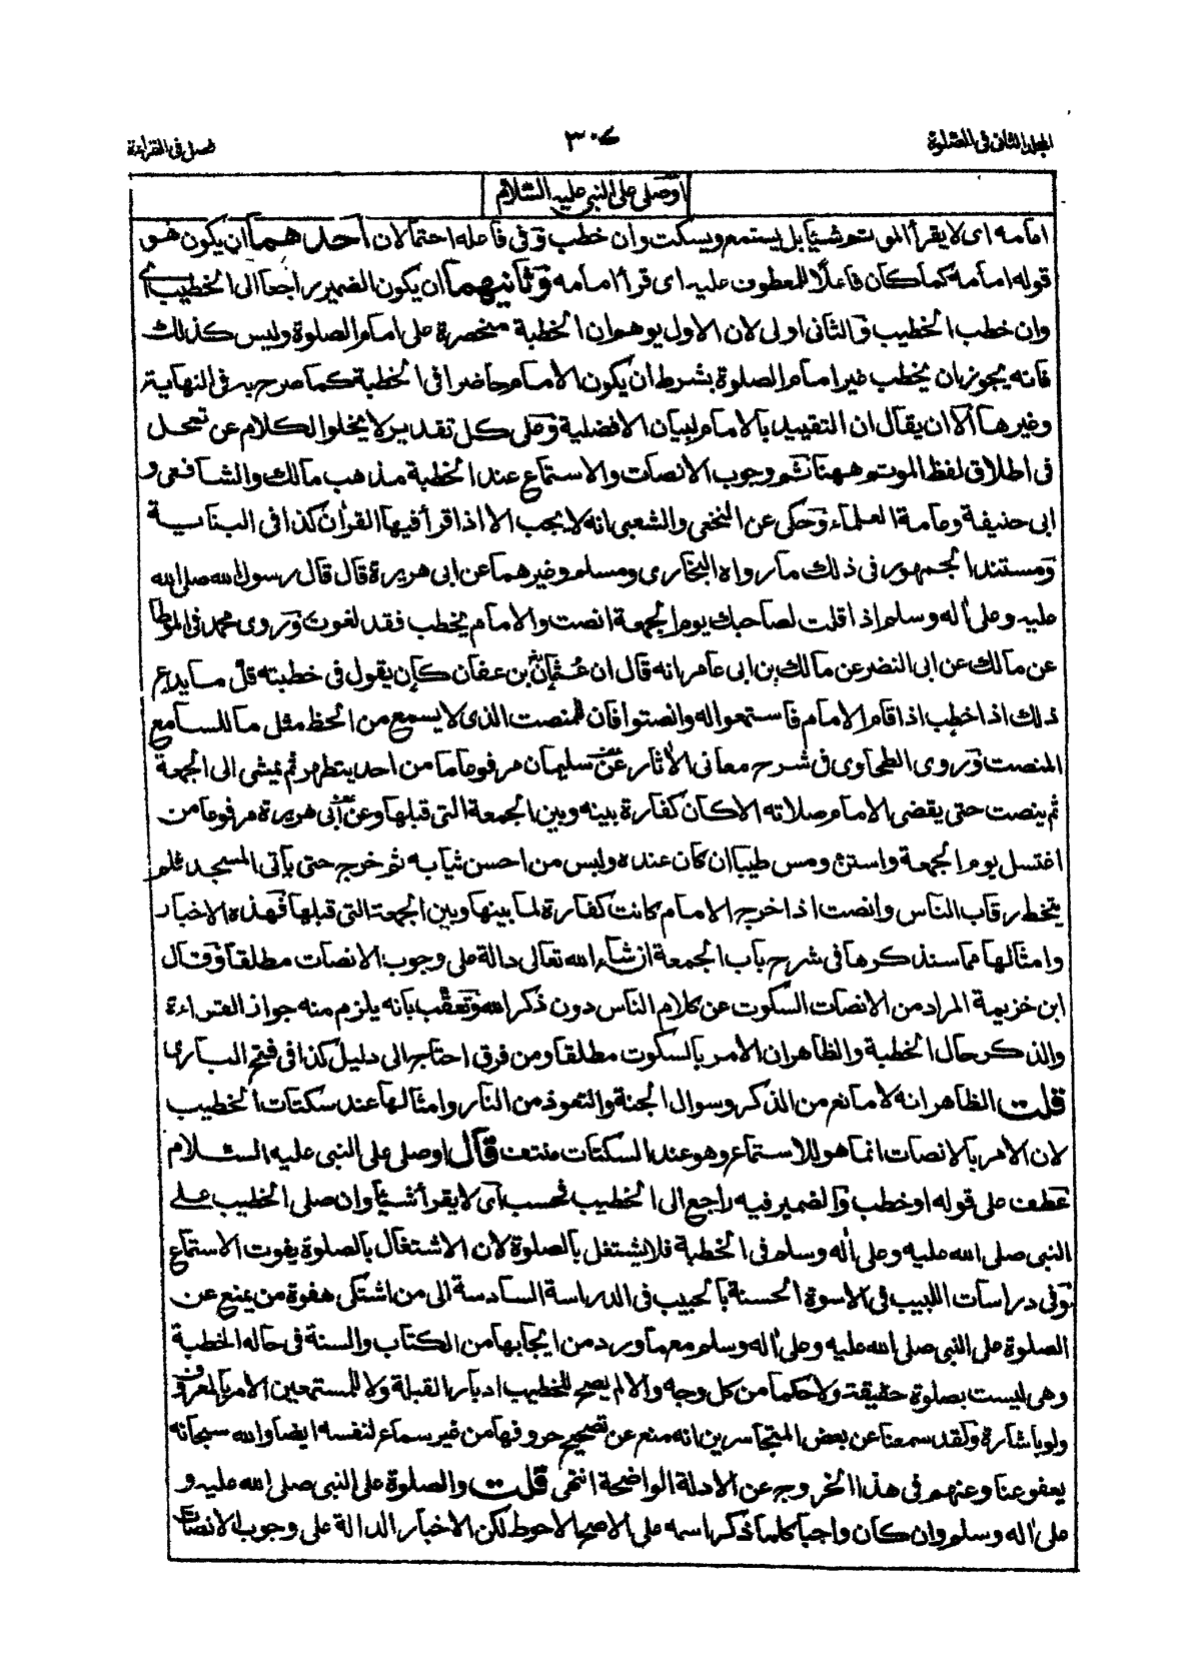 المجلد الثانی فی الصلوة
٣٠٤
فصل فی القراءة
اوصلی علی النبی علیه السلام
امامه ای لا یقرأ المؤتم شیئا بل یستمع ویسکت وان خطب وفی فاعله احتمالان احدهما ان یکون هو
قوله امامه کما کان فاعلًا للمعطوف علیه ای قرأ امامه وثانیهما ان یکون الضمیر راجعا الی الخطیب ای
وان خطب الخطیب والثانی اولی لان الاول یوهم ان الخطبة منحصرة علی امام الصلوة ولیس کذلك
فانه یجوز بان یخطب غیر امام الصلوة بشرط ان یکون الامام حاضرا فی الخطبة کما صرح به فی النهایة
وغیرها الا ان یقال ان التقیید بالامام لبیان الافضلیة وعلی کل تقدیر لا یخلو الکلام عن تمحل
فی اطلاق لفظ المؤتم ههنا ثم وجوب الانصات والاستماع عند الخطبة مذهب مالك والشافعی و
ابی حنیفة وعامة العلماء وحکی عن النخعی والشعبی انه لا یجب الا اذا قرأ فیها القرآن کذا فی البنایة
ومستند الجمهور فی ذلك ما رواه البخاری ومسلم وغیرهما عن ابی هریرة قال قال رسول الله صلی الله
علیه وعلی اله وسلم اذا قلت لصاحبك یوم الجمعة انصت والامام یخطب فقد لغوت وروی محمد فی الموطا
عن مالك عن ابی النضر عن مالك بن ابی عامر انه قال ان عثمان بن عفان کان یقول فی خطبته قل ما یدع
ذلك اذا خطب اذا قام الامام فاستمعوا له وانصتوا فان للمنصت الذی لا یسمع من الحظ مثل ما للسامع
المنصت وروی الطحاوی فی شرح معانی الآثار عن سلیمان مرفوعا ما من احد یتطهر ثم یمشی الی الجمعة
ثم ینصت حتی یقضی الامام صلاته الا کان کفارة بینه وبین الجمعة التی قبلها وعن ابی هریرة مرفوعا من
اغتسل یوم الجمعة واستن ومس طیبا ان کان عنده ولبس من احسن ثیابه ثم خرج حتی یأتی المسجد فلم
یتخط رقاب الناس وانصت اذا خرج الامام کانت کفارة لما بینها وبین الجمعة التی قبلها فهذه الاخبار
وامثالها مما سنذکرها فی شرح باب الجمعة ان شاء الله تعالی دالة علی وجوب الانصات مطلقا وقال
ابن خزیمة المراد من الانصات السکوت عن کلام الناس دون ذکر الله وتعقب بانه یلزم منه جواز القراءة
والذکر حال الخطبة والظاهر ان الامر بالسکوت مطلقا ومن فرق احتاج الی دلیل کذا فی فتح الباری
قلت الظاهر انه لا مانع من الذکر وسوال الجنة والتعوذ من النار وامثالها عند سکتات الخطیب
لان الامر بالانصات انما هو للاستماع وهو عند السکتات منتف قال او صلی علی النبی علیه السلام
عطف علی قوله او خطب والضمیر فیه راجع الی الخطیب فحسب ای لا یقرأ شیئا وان صلی الخطیب علی
النبی صلی الله علیه وعلی اله وسلم فی الخطبة فلا یشتغل بالصلوة لان الاشتغال بالصلوة یفوت الاستماع
وفی دراسات اللبیب فی الاسوة الحسنة بالحبیب فی الدراسة السادسة الی من اشتکی هفوة من یمنع عن
الصلوة علی النبی صلی الله علیه وعلی اله وسلم مع ما ورد من ایجابها من الکتاب والسنة فی حاله الخطبة
وهی لیست بصلوة حقیقة ولا حکما من کل وجه والا لم یصح للخطیب ادبار القبلة ولا للمستمعین الامر بالمعروف
ولو باشارة ولقد سمعنا عن بعض المتجاسرین انه منع عن تصحیح حروفها من غیر سماع لنفسه ایضا والله سبحانه
یعفو عنا وعنهم فی هذا الخروج عن الادلة الواضحة انتهی قلت والصلوة علی النبی صلی الله علیه و
علی اله وسلم وان کان واجبا کلما ذکر اسمه علی الاصح الاحوط لکن الاخبار الدالة علی وجوب الانصات